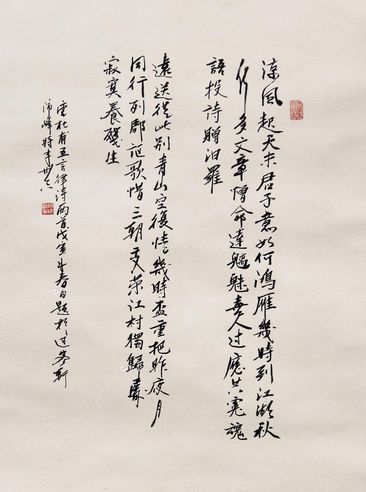 涼風起天末君子意如何鴻雁幾時到江湖秋
水多文章憎命達魑魅喜人過應共冤魂
語投詩贈汨羅
遠送從此別青山空復情幾時盃重把昨夜月
同行列郡謳歌惜三朝出入荣江村獨歸處
寂寞養殘生
杜甫五言律詩兩首戊寅年春日題於